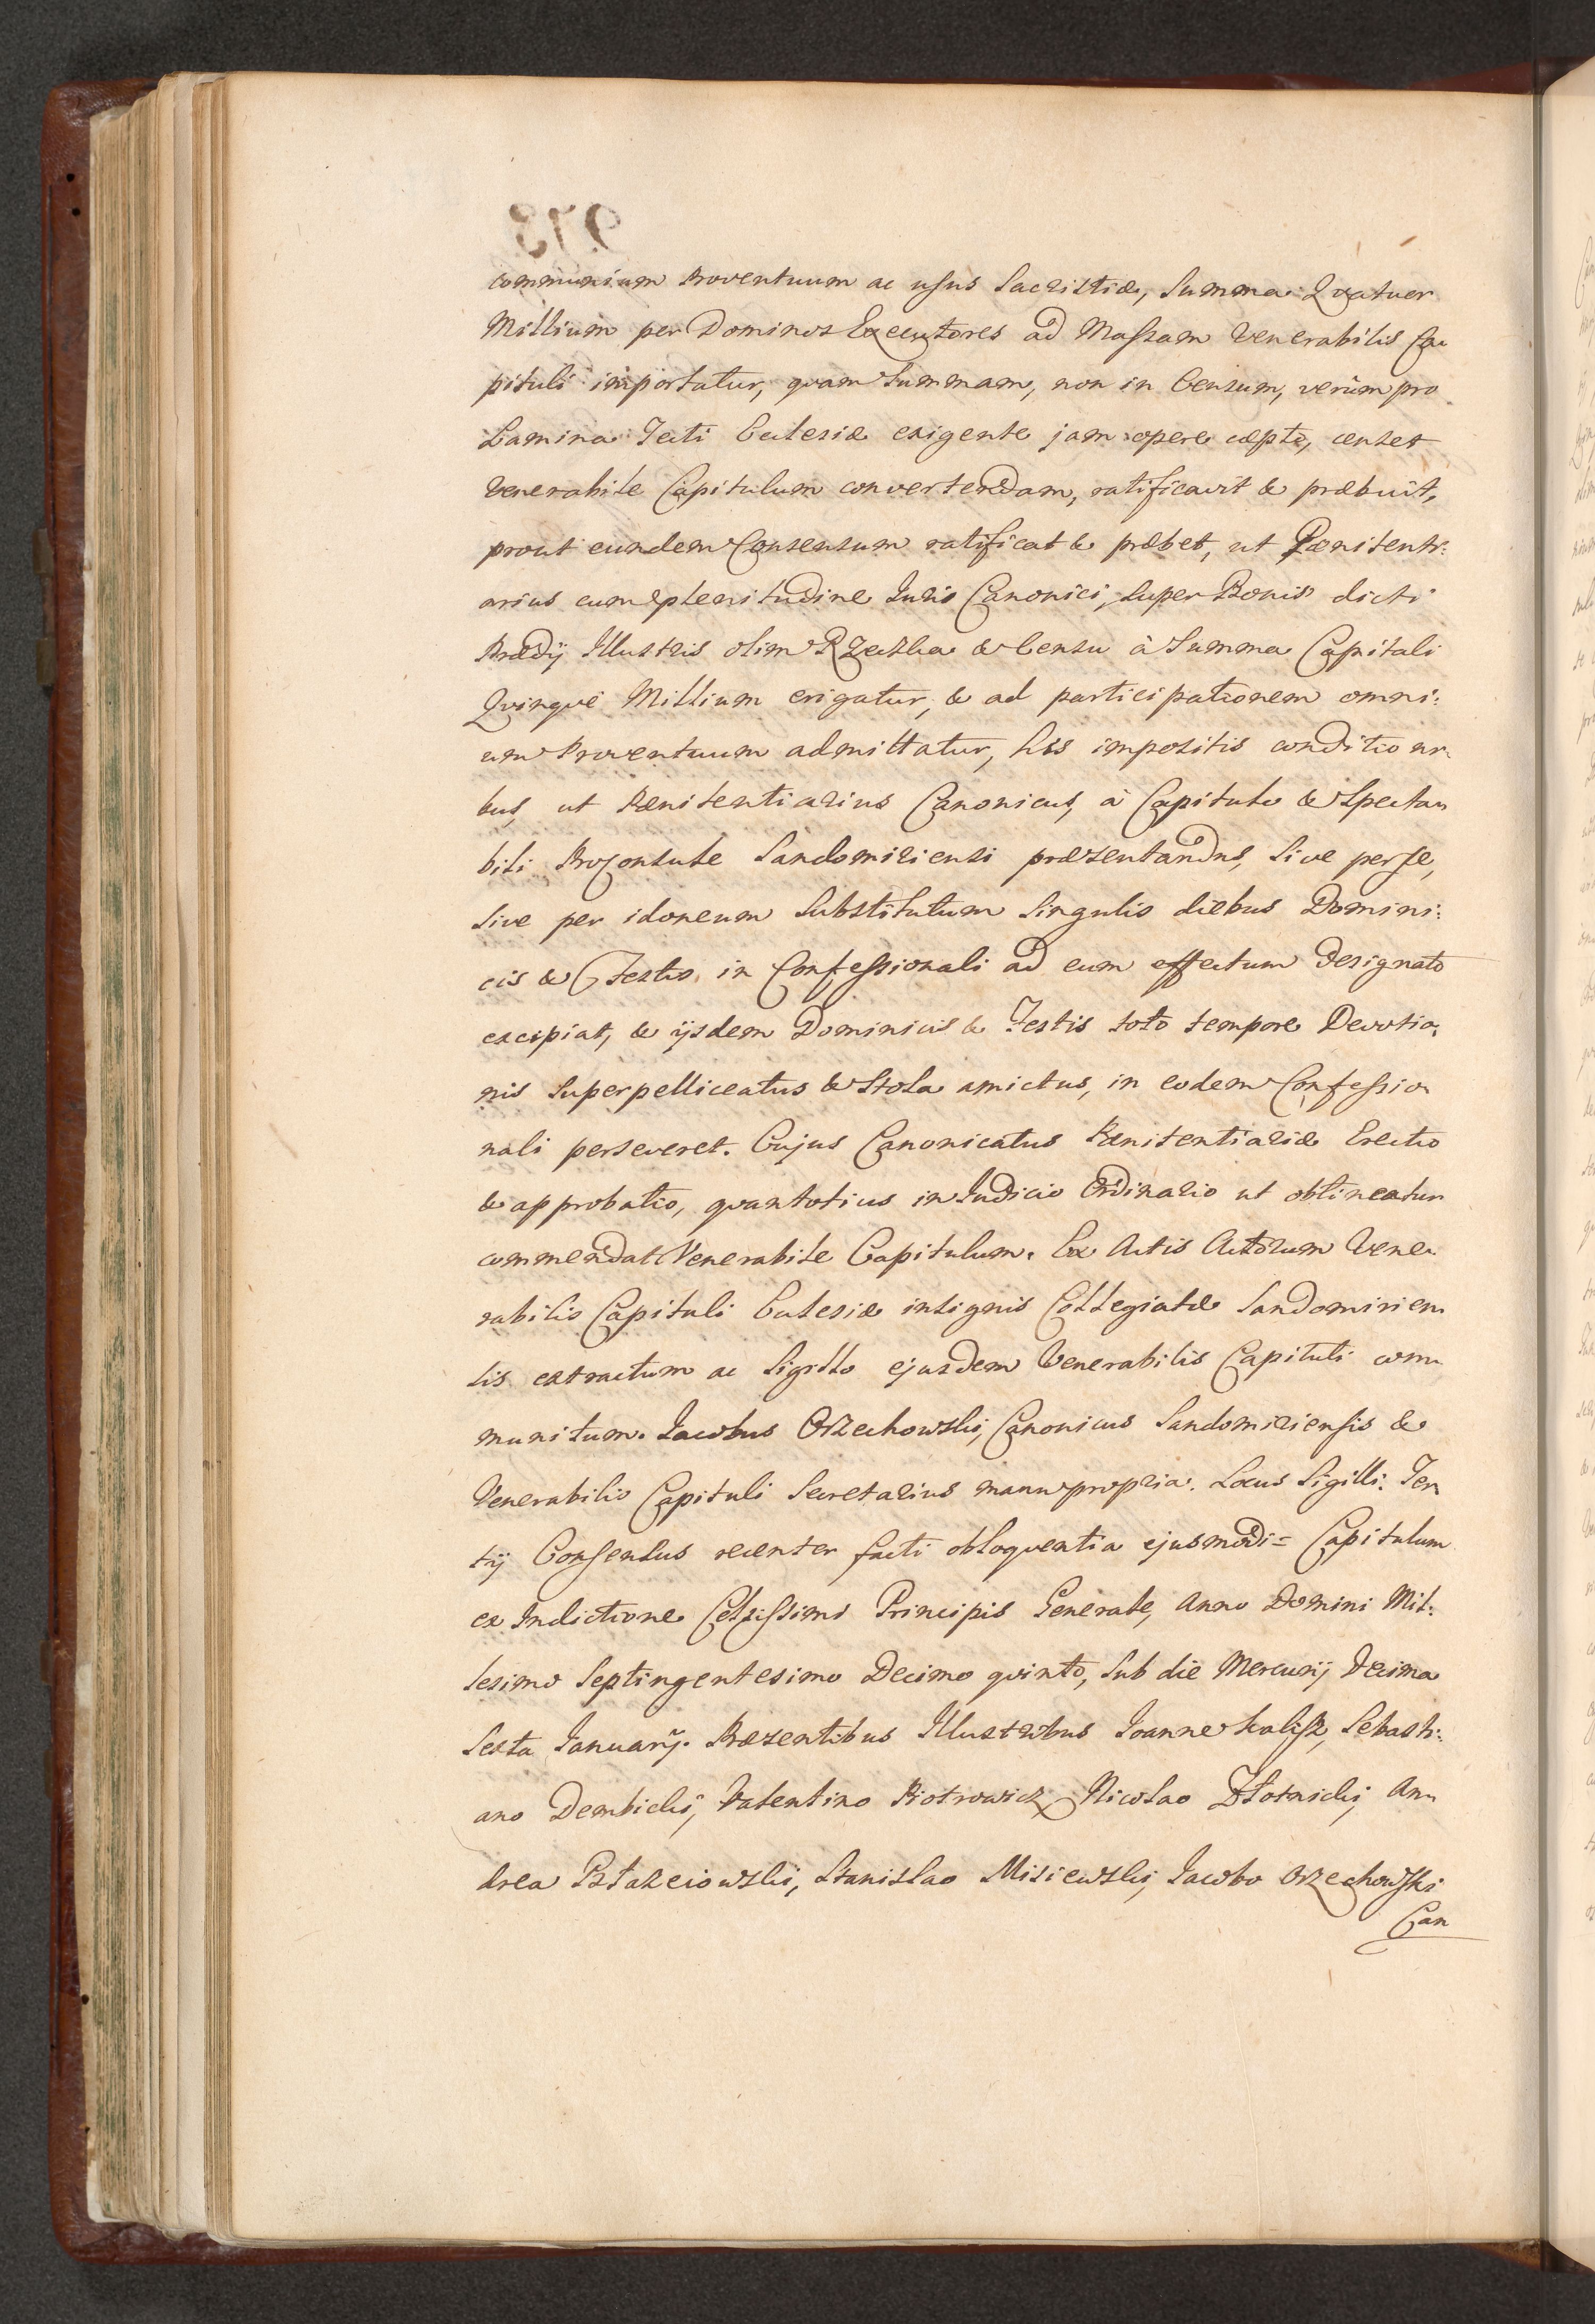 973
communium Proventuum ac usus Sacristiæ, Summa Qvatuor
Millium per Dominos Executores ad Massam Venerabilis Ca
pituli importatur, qvam Summam, non in Censum, verùm pro
Lamina Tecti Eclesiæ exigente jam opere cæpto, censet
Venerabile Capitulum convertendam, ratificavit & præbuit,
prout eundem Consensum ratificat & præbet, ut Pænitenti:
arius cum plenitudine Iuris Canonici, Super Bonis dicti
Prædij Illustris olim Rzeczka & Censu à Summa Capitali
Qvinqve Millium erigatur, & ad participationem omni:
um Proventuum admittatur, his impositis conditioni
bus, ut Pænitentiarius Canonicus, à Capitulo & Specta
bili Proconsule Sandomiriensi præsentandus, sive per se,
sive per idoneum Substitutum Singulis diebus Domini:
cis & Festis, in Confessionali ad eum effectum designato
excipiat, & ijsdem Dominicis & Festis toto tempore Devotio
nis Superpelliceatus & Stola amictus, in eodem Confessio
nali perseveret. Cujus Canonicatus Pænitentiariæ Erectio
& approbatio, qvantotius in Iudicio Ordinario ut obtineatur
commendat Venerabile Capitulum. Ex Actis Actorum Vene
rabilis Capituli Eclesiæ insignis Collegiatæ Sandomirien
sis extractum ac Sigillo ejusdem Venerabilis Capituli com
munitum. Iacobus Orzechowski, Canonicus Sandomiriensis &
Venerabilis Capituli Secretarius manu propria. Locus Sigilli. Ter
tij Consensus recenter facti obloqventia ejusmodi = Capitulum
ex Indictione Celsissimi Principis Generale, Anno Domini Mil:
lesimo Septingentesimo Decimo qvinto, Sub die Mercurij Decima
Sexta Ianuarij. Præsentibus Illustribus Ioanne Kalisz, Sebasti:
ano Dembicki, Valentino Piotrowicz, Nicolao Złotnicki, An
drea Stanislao Misiewski, Iacobo Orzechowski
Can